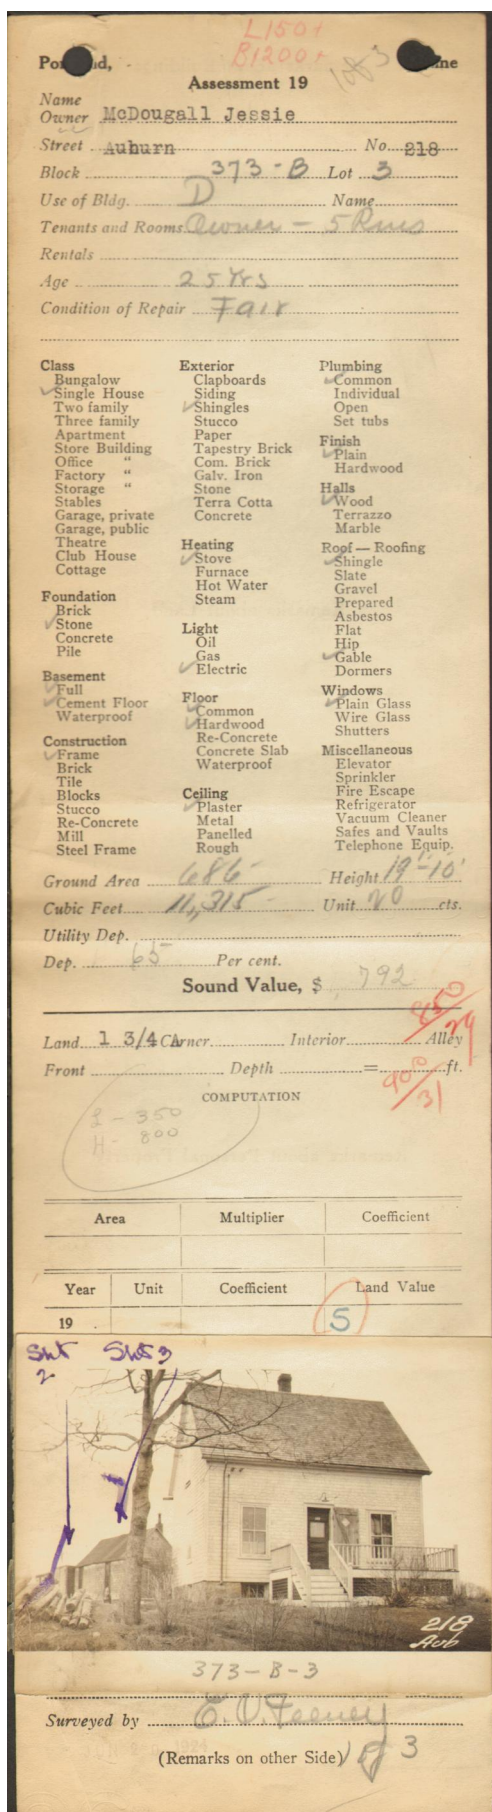 L150+
B1200+
Portland, Maine
1 of 3
Assessment 19
Name
Owner McDougall Jessie
Street Auburn No. 218
Block 373-B Lot 3
Use of Bldg. D Name
Tenants and Rooms Owner - 5 Rms
Rentals
Age 25 Yrs
Condition of Repair Fair
Class
Bungalow
Single House
Two family
Three family
Apartment
Store Building
Office "
Factory "
Storage "
Stables
Garage, private
Garage, public
Theatre
Club House
Cottage
Foundation
Brick
Stone
Concrete
Pile
Basement
Full
Cement Floor
Waterproof
Construction
Frame
Brick
Tile
Blocks
Stucco
Re-Concrete
Mill
Steel Frame
Exterior
Clapboards
Siding
Shingles
Stucco
Paper
Tapestry Brick
Com. Brick
Galv. Iron
Stone
Terra Cotta
Concrete
Heating
Stove
Furnace
Hot Water
Steam
Light
Oil
Gas
Electric
Floor
Common
Hardwood
Re-Concrete
Concrete Slab
Waterproof
Ceiling
Plaster
Metal
Panelled
Rough
Plumbing
Common
Individual
Open
Set tubs
Finish
Plain
Hardwood
Halls
Wood
Terrazzo
Marble
Roof — Roofing
Shingle
Slate
Gravel
Prepared
Asbestos
Flat
Hip
Gable
Dormers
Windows
Plain Glass
Wire Glass
Shutters
Miscellaneous
Elevator
Sprinkler
Fire Escape
Refrigerator
Vacuum Cleaner
Safes and Vaults
Telephone Equip.
Ground Area 686 Height 19'-10'
Cubic Feet 11,315 Unit 20 cts.
Utility Dep.
Dep. 65 Per cent.
Sound Value, $ 792
850/29
Land 1 3/4 A Corner Interior Alley
Front Depth = ft.
900/31
COMPUTATION
L - 350
H - 800
Area Multiplier Coefficient
Year Unit Coefficient Land Value
19 5
Sht 2 Sht 3
218
Aub
373-B-3
Surveyed by E. V. Feeney
(Remarks on other Side) 1 of 3